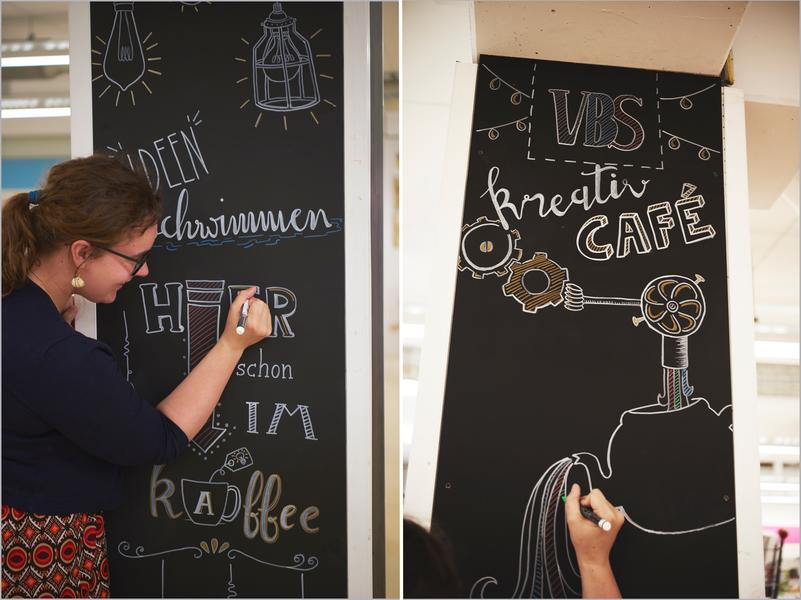 IDEEN
schwimmen
HIER
schon
IM
kAffee
VBS
kreativ
CAFÉ